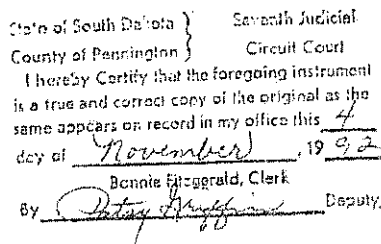 State of South Dakota } Seventh Judicial
County of Pennington } Circuit Court
I hereby Certify that the foregoing instrument
is a true and correct copy of the original as the
same appears on record in my office this 4
day of November, 1992
Bonnie Fitzgerald, Clerk
By Patsy Deputy,